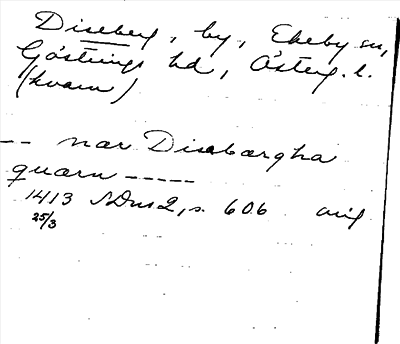 Diseberg, by, Ekeby sn,
Göstrings hd, Österg. l.
(kvarn)
-- nar Disabærgha
quarn -----
1413 SDns2, s. 606 orig
25/3